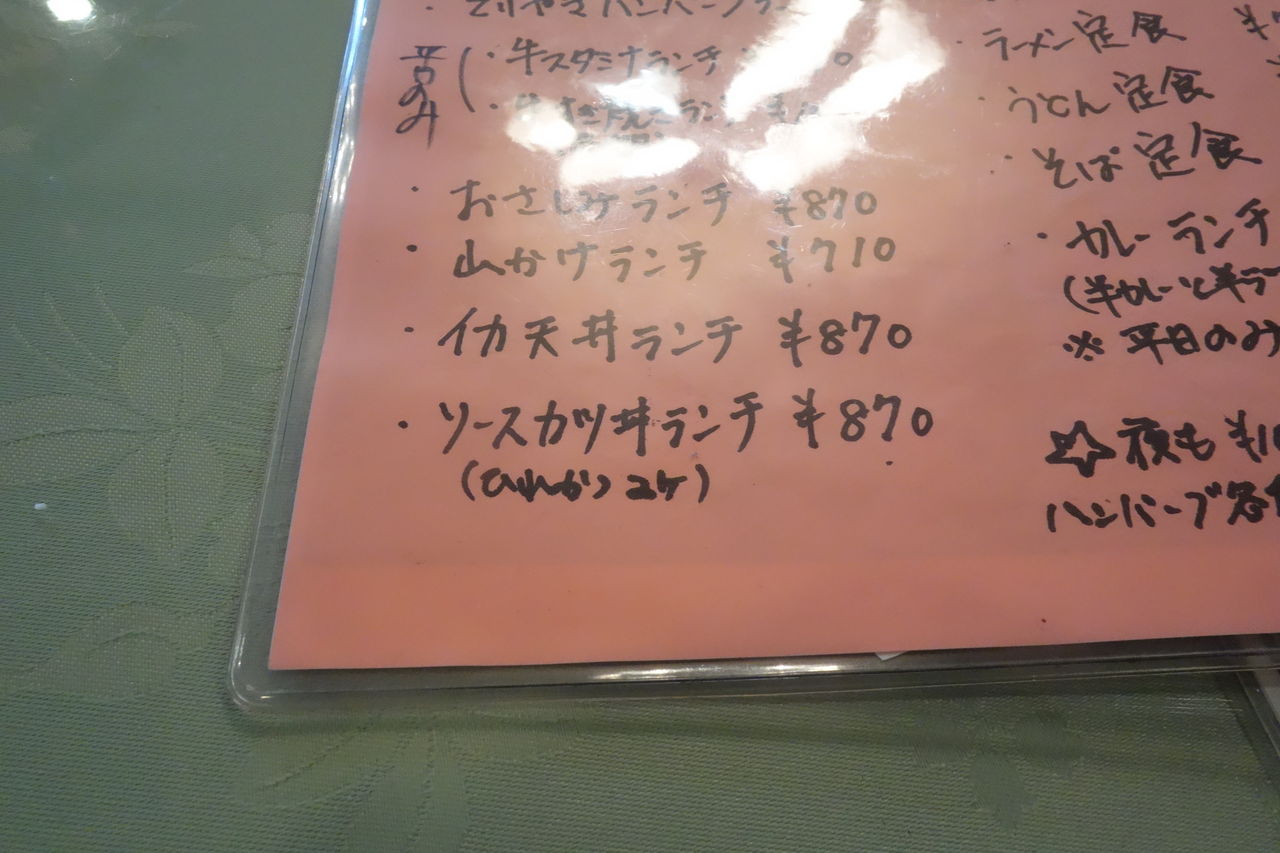 てりやきハンバーグラ
昔のみ
・牛スタミナランチ 0
・牛 ランチ ¥
・おさしみランチ ¥870
・山かけランチ ¥710
・イカ天丼ランチ ¥870
・ソースカツ丼ランチ ¥870
(ひれかつ2ケ)
ラーメン定食 ¥
・うどん定食
・そば定食
・カレーランチ
(半カレーと半ラー
※平日のみ
☆夜も¥10
ハンバーグ各